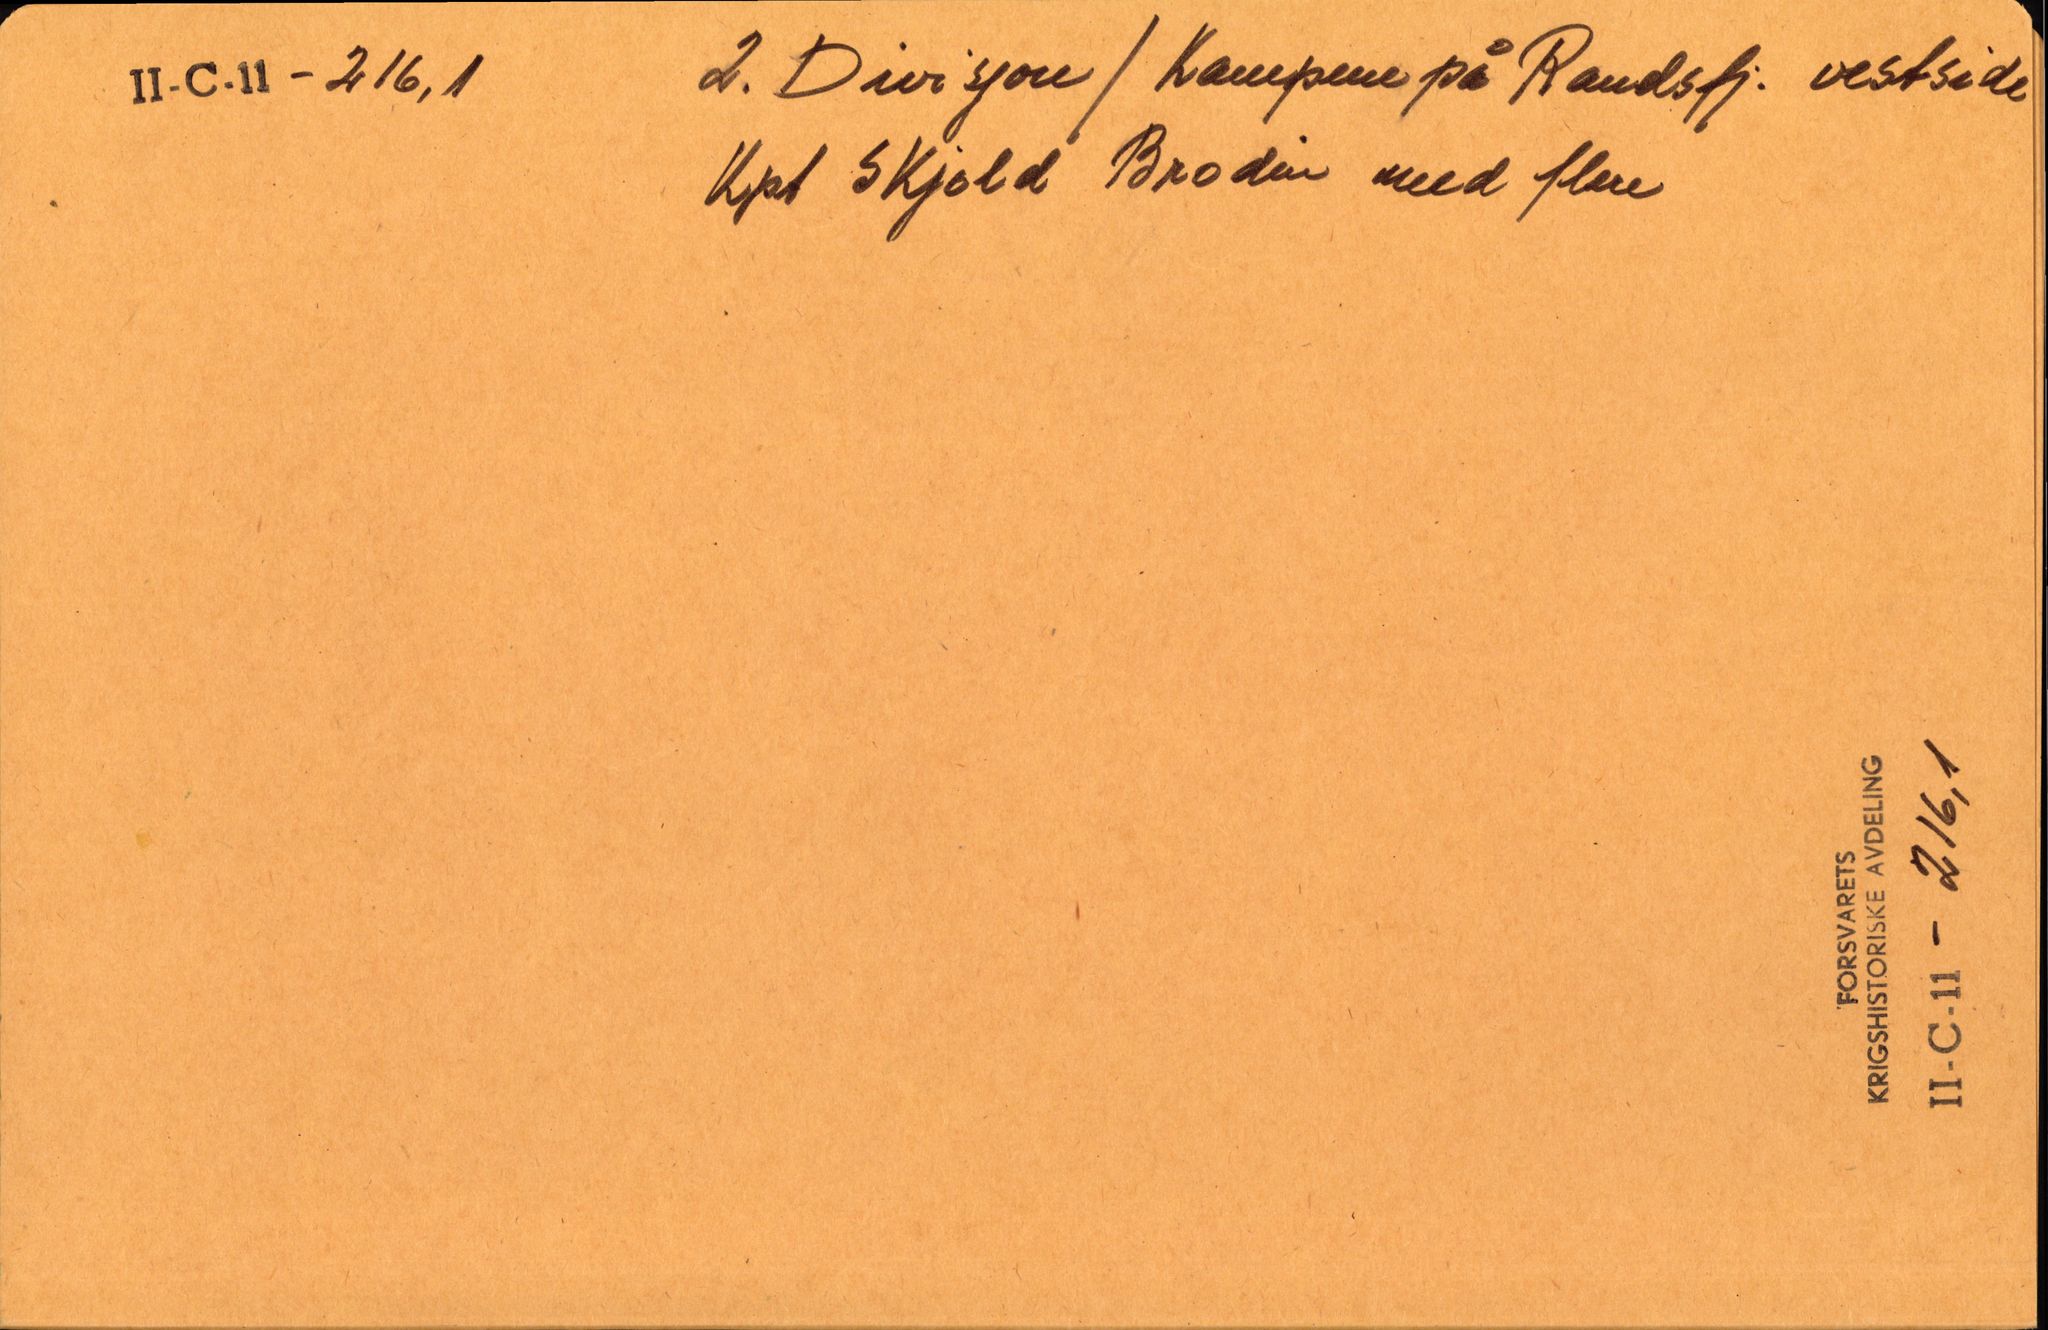 II-C-11 - 216,1
2. Divisjon / Kampene på Randsfj. vestside
Kpt Skjold Brodin med flere
FORSVARETS
KRIGSHISTORISKE AVDELING
II-C-11 - 216,1